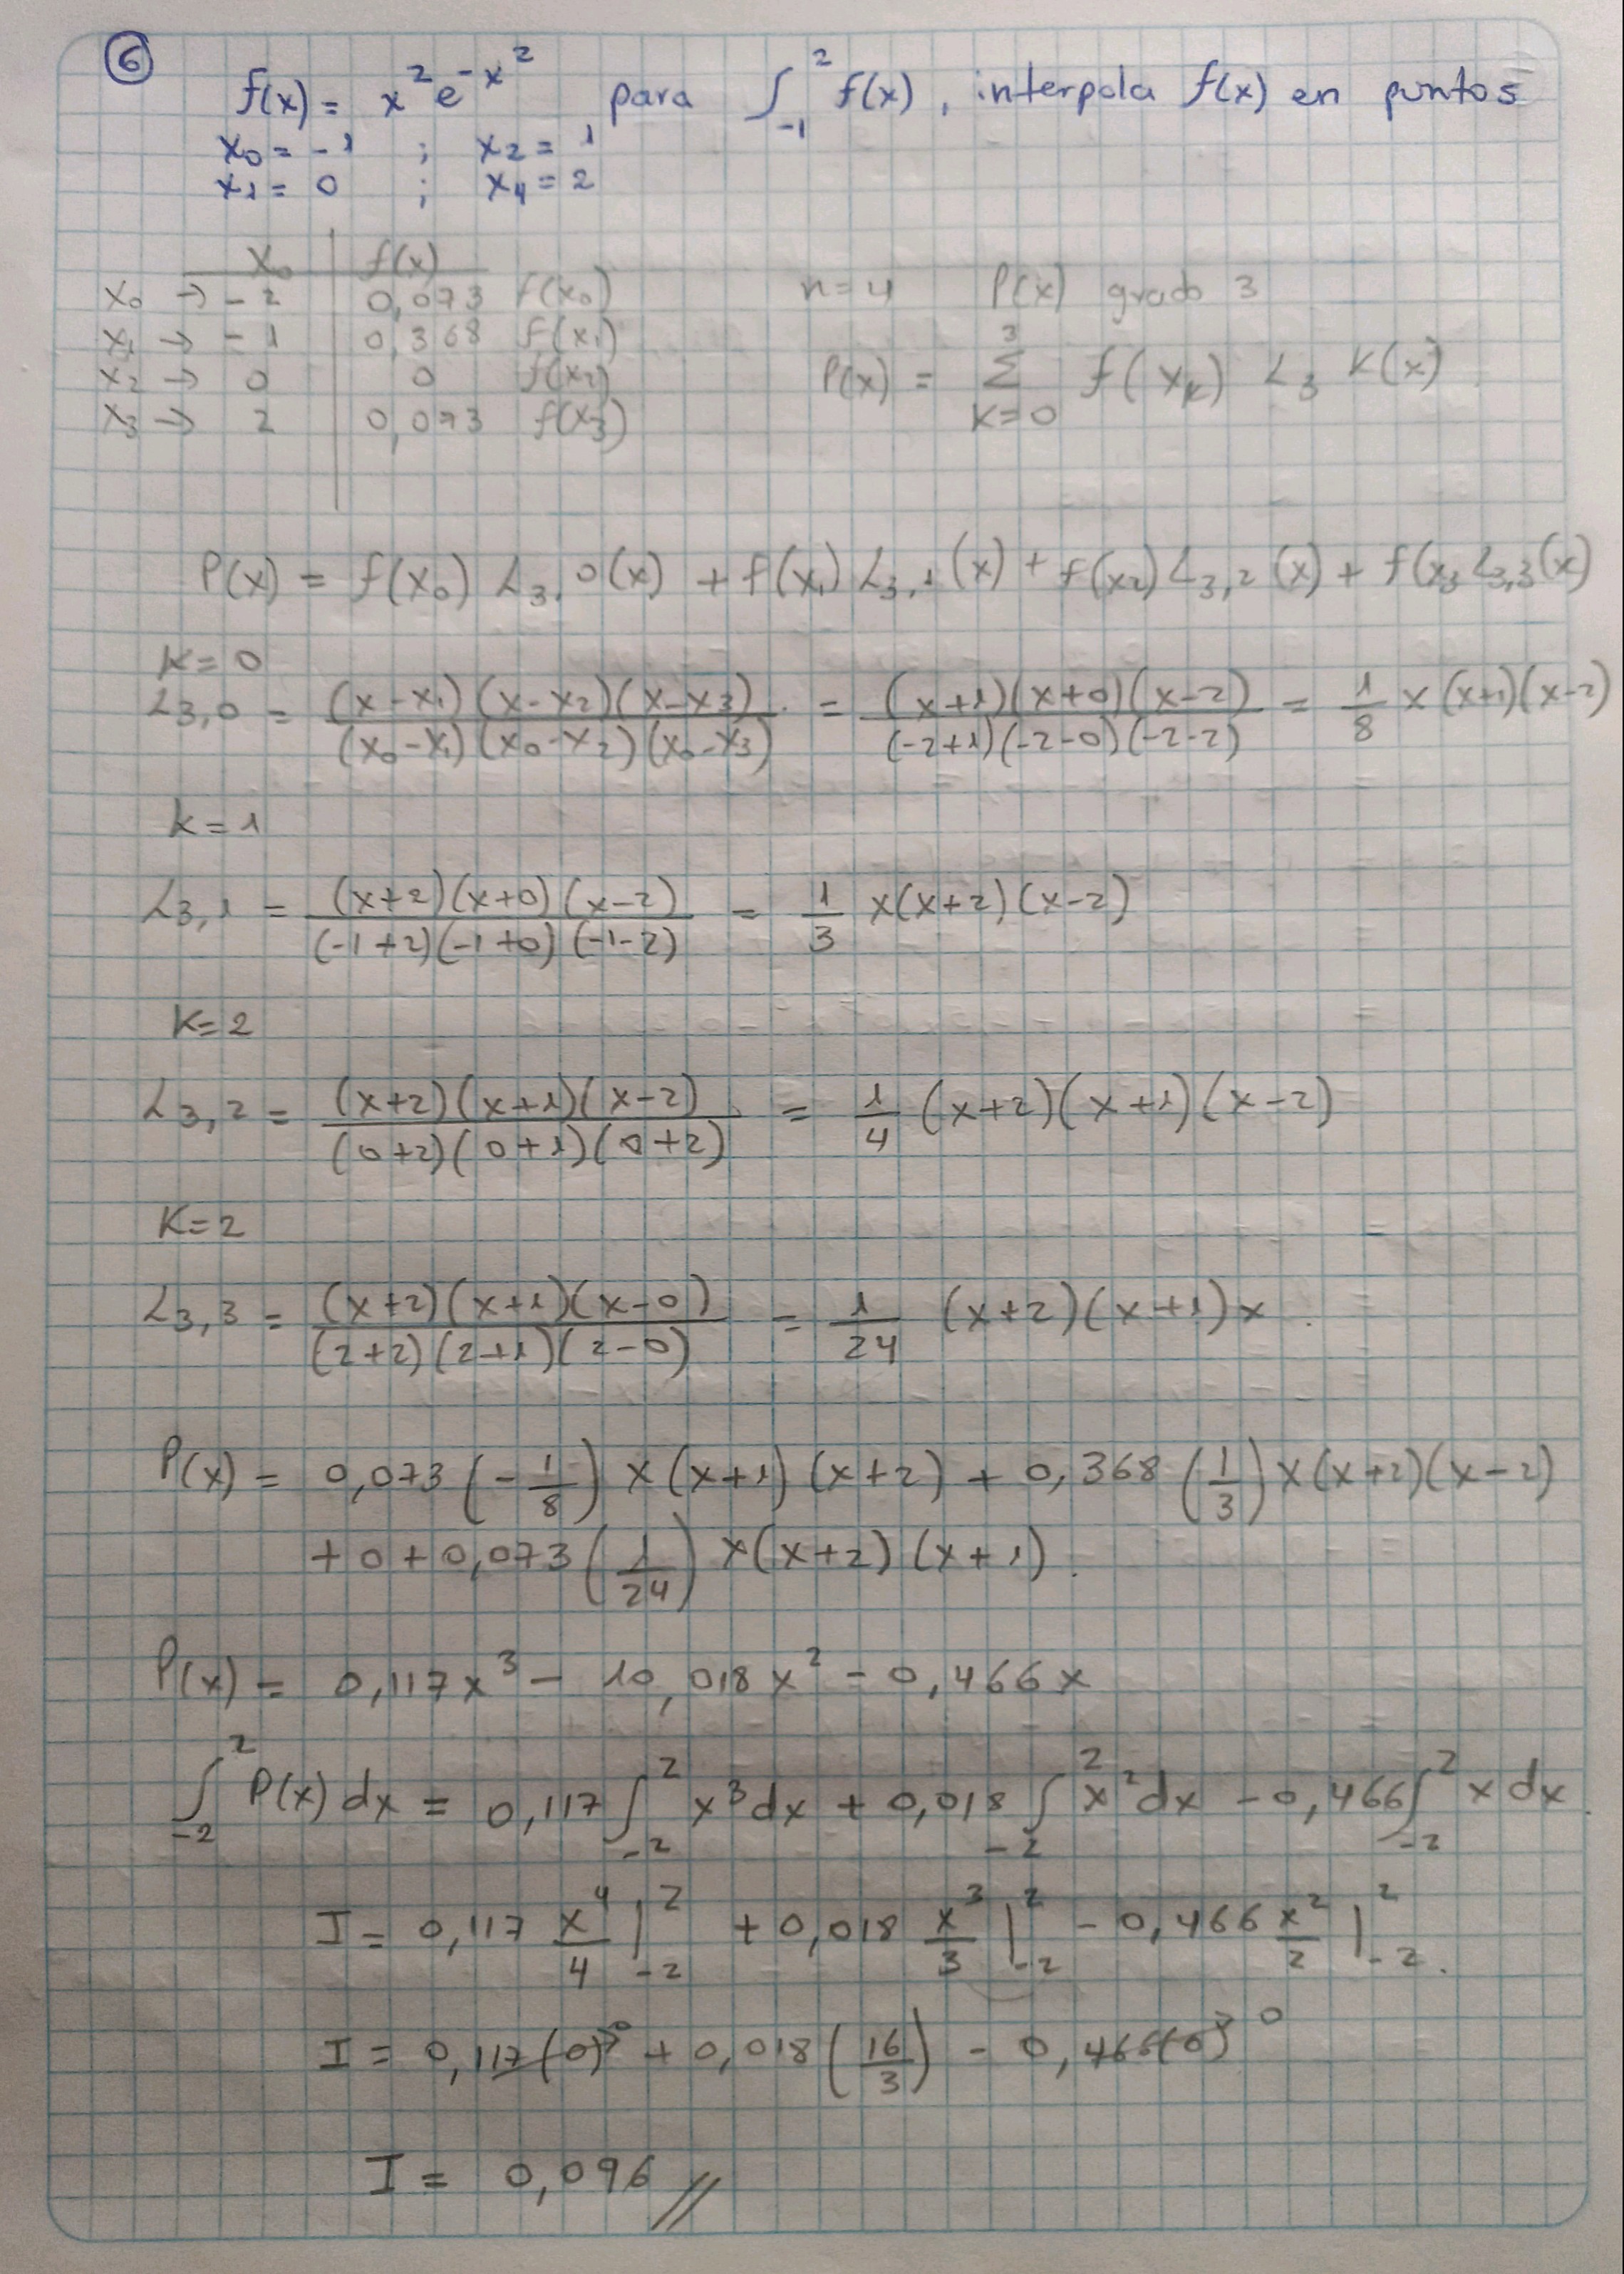 6
f(x) = x² e^-x² para ∫_-1^2 f(x), interpola f(x) en puntos
x0 = -1 ; x2 = 1
x1 = 0 ; x4 = 2
x0 | f(x)
x0 → -2 | 0,073 f(x0)
x1 → -1 | 0,368 f(x1)
x2 → 0 | 0 f(x2)
x3 → 2 | 0,073 f(x3)
n = 4 P(x) grado 3
P(x) = Σ_{K=0}^{3} f(xk) L3 K(x)
P(x) = f(x0) L3,0(x) + f(x1) L3,1(x) + f(x2) L3,2(x) + f(x3 L3,3(x)
K = 0
L3,0 = (x-x1)(x-x2)(x-x3) / (x0-x1)(x0-x2)(x0-x3) = (x+1)(x+0)(x-2) / (-2+1)(-2-0)(-2-2) = 1/8 x(x+1)(x-2)
k = 1
L3,1 = (x+2)(x+0)(x-2) / (-1+2)(-1+0)(-1-2) = 1/3 x(x+2)(x-2)
K = 2
L3,2 = (x+2)(x+1)(x-2) / (0+2)(0+1)(0+2) = 1/4 (x+2)(x+1)(x-2)
K = 2
L3,3 = (x+2)(x+1)(x-0) / (2+2)(2+1)(2-0) = 1/24 (x+2)(x+1)x.
P(x) = 0,073 (-1/8) x(x+1)(x+2) + 0,368 (1/3) x(x+2)(x-2)
+ 0 + 0,073 (1/24) x(x+2)(x+1).
P(x) = 0,117x³ - 10,018x² - 0,466x
∫_-2^2 P(x) dx = 0,117 ∫_-2^2 x³dx + 0,018 ∫_-2^2 x²dx - 0,466 ∫_-2^2 x dx.
I = 0,117 x⁴/4 |_-2^2 + 0,018 x³/3 |_-2^2 - 0,466 x²/2 |_-2^2.
I = 0,117(0)⁰ + 0,018 (16/3) - 0,466(0) 0
I = 0,096 //